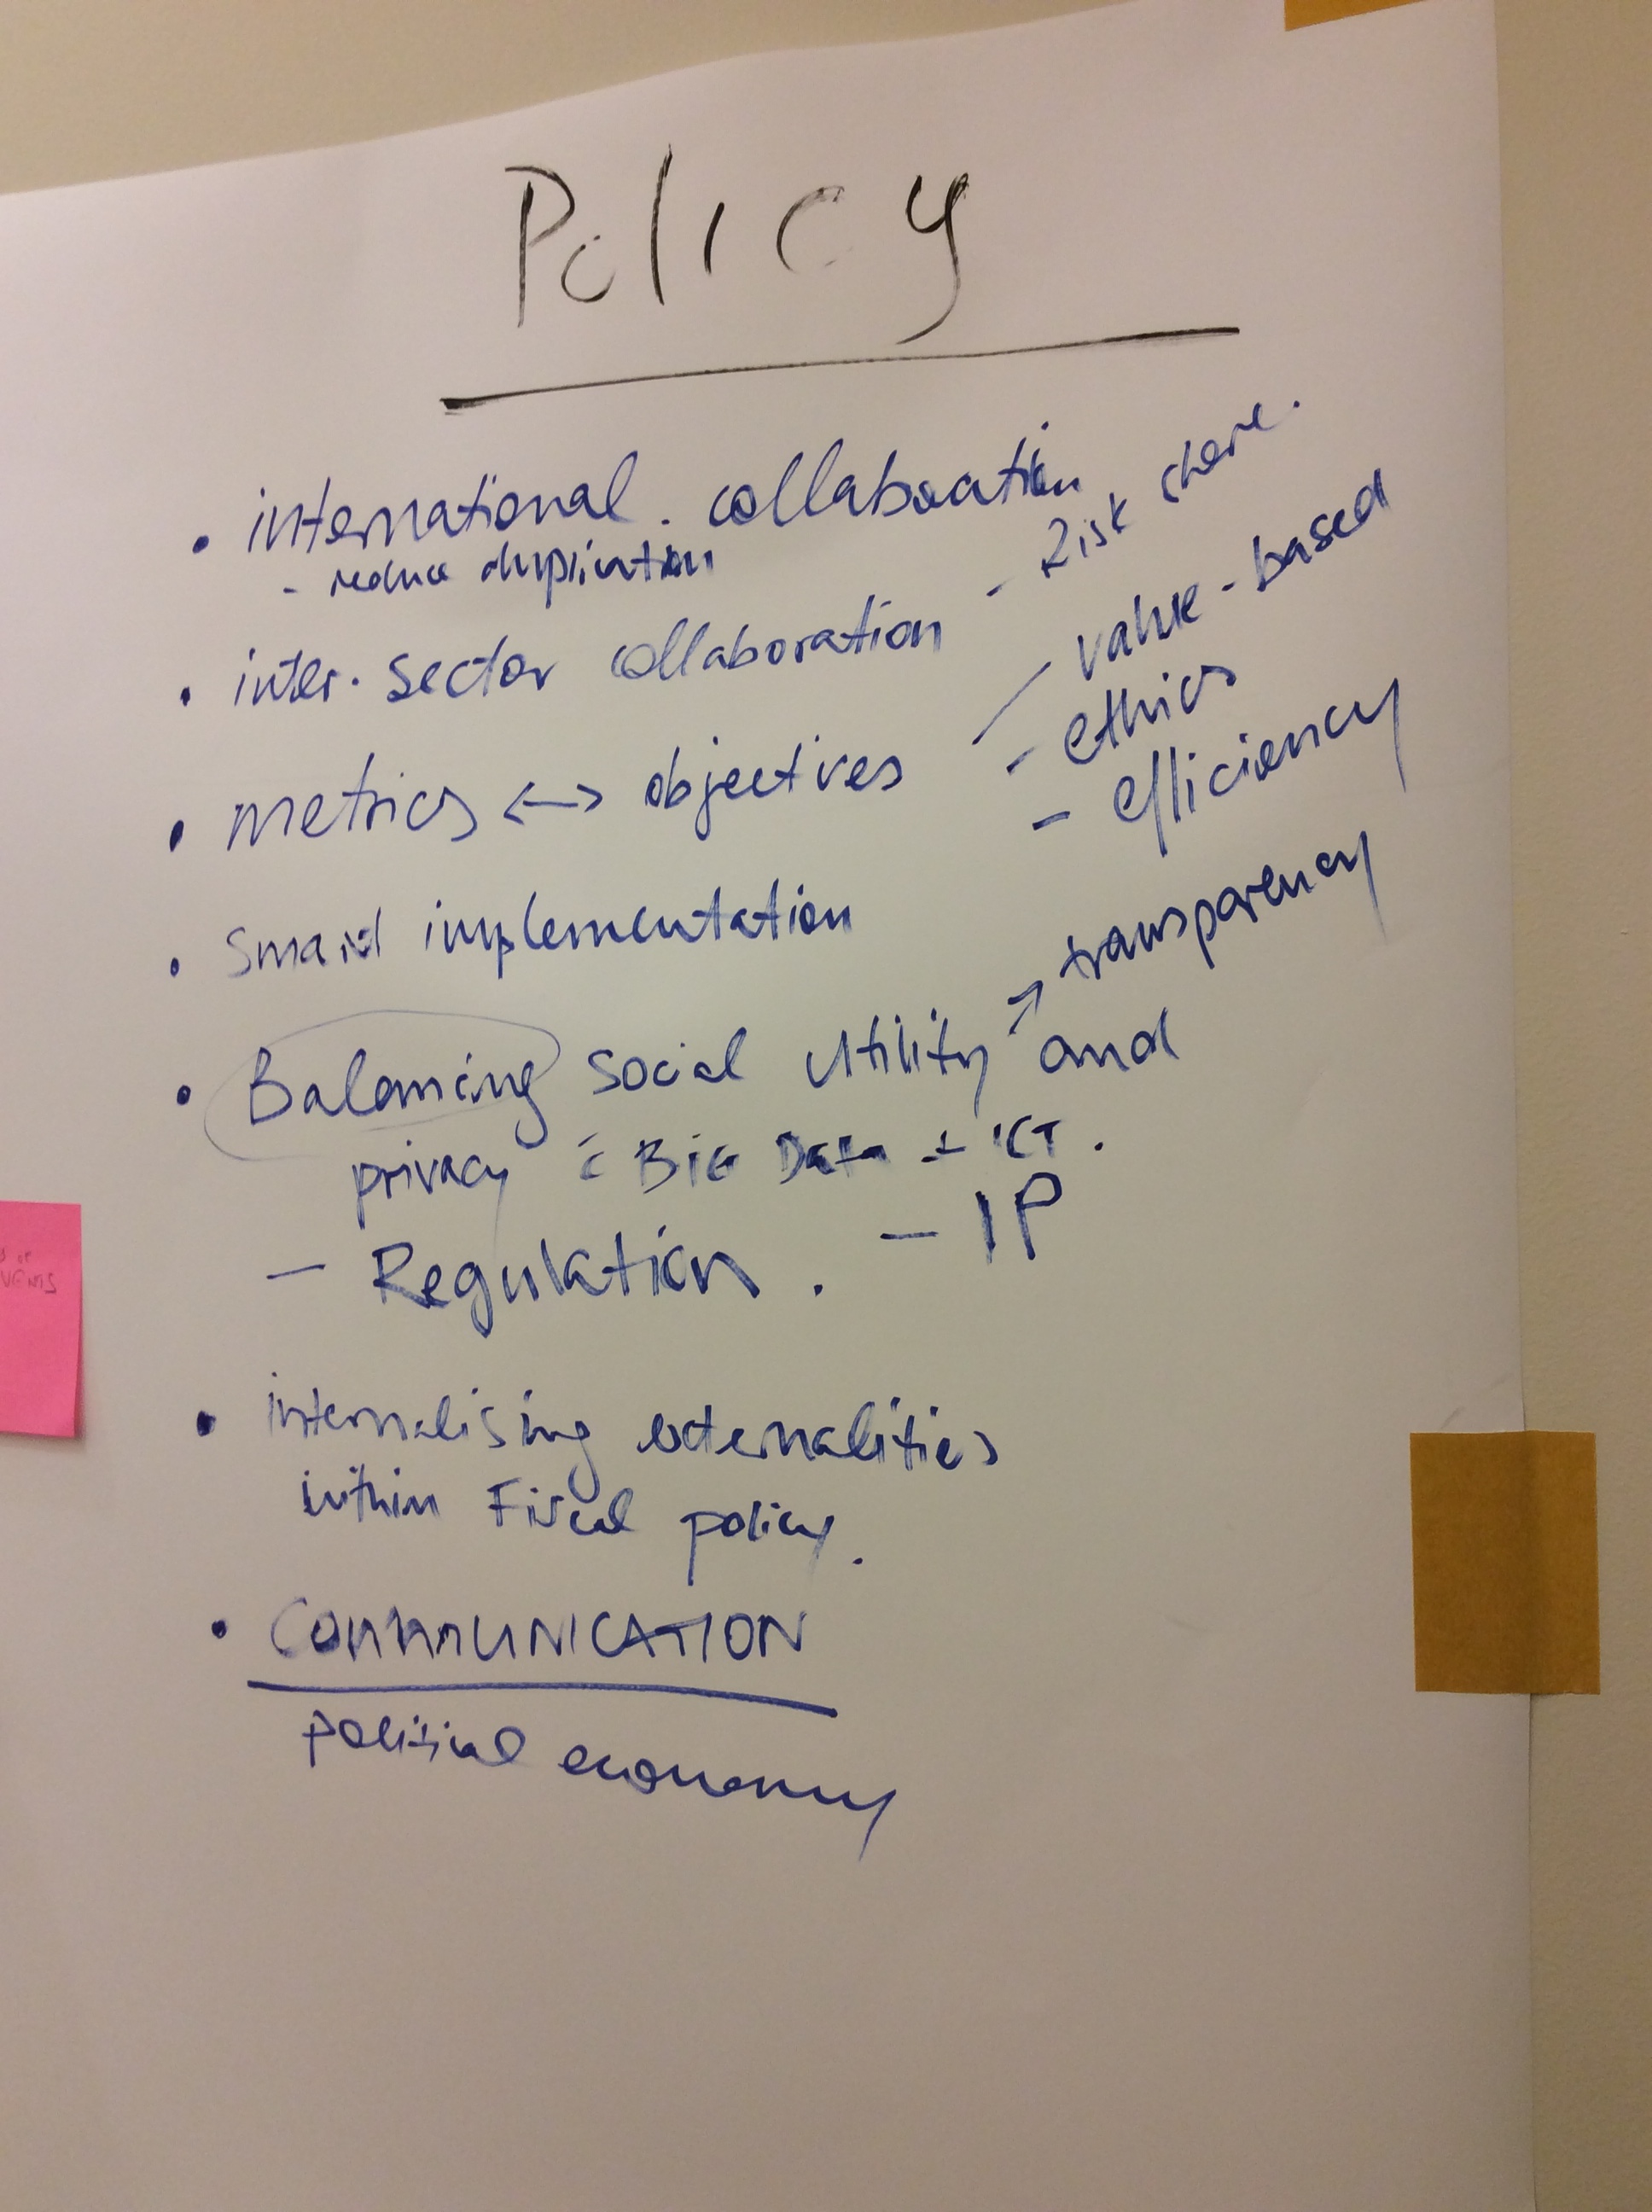 Policy
• international. collaboration
- reduce duplication
• inter-sector collaboration - Risk share.
• metrics <-> objectives - value-based
- ethics
- efficiency
• Smart implementation
• Balancing social utility and → transparency
privacy c̄ BIG Data + ICT.
- Regulation. - IP
• internalising externalities
within Fiscal policy.
• COMMUNICATION
political economy
VENTS